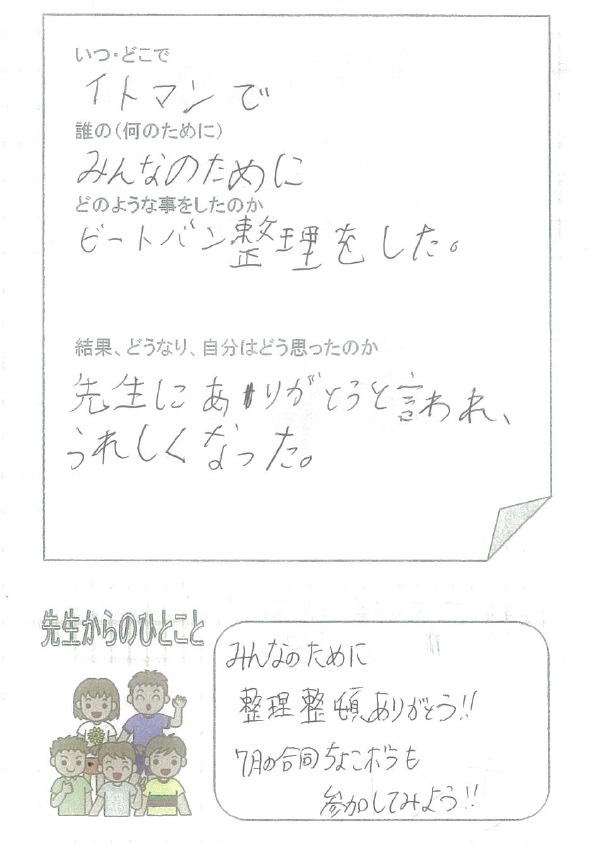 いつ・どこで
イトマンで
誰の（何のために）
みんなのために
どのような事をしたのか
ビートバン整理をした。
結果、どうなり、自分はどう思ったのか
先生にありがとうと言われ、
うれしくなった。
先生からのひとこと
みんなのために
整理整頓ありがとう!!
7月の合同ちょこボラも
参加してみよう!!